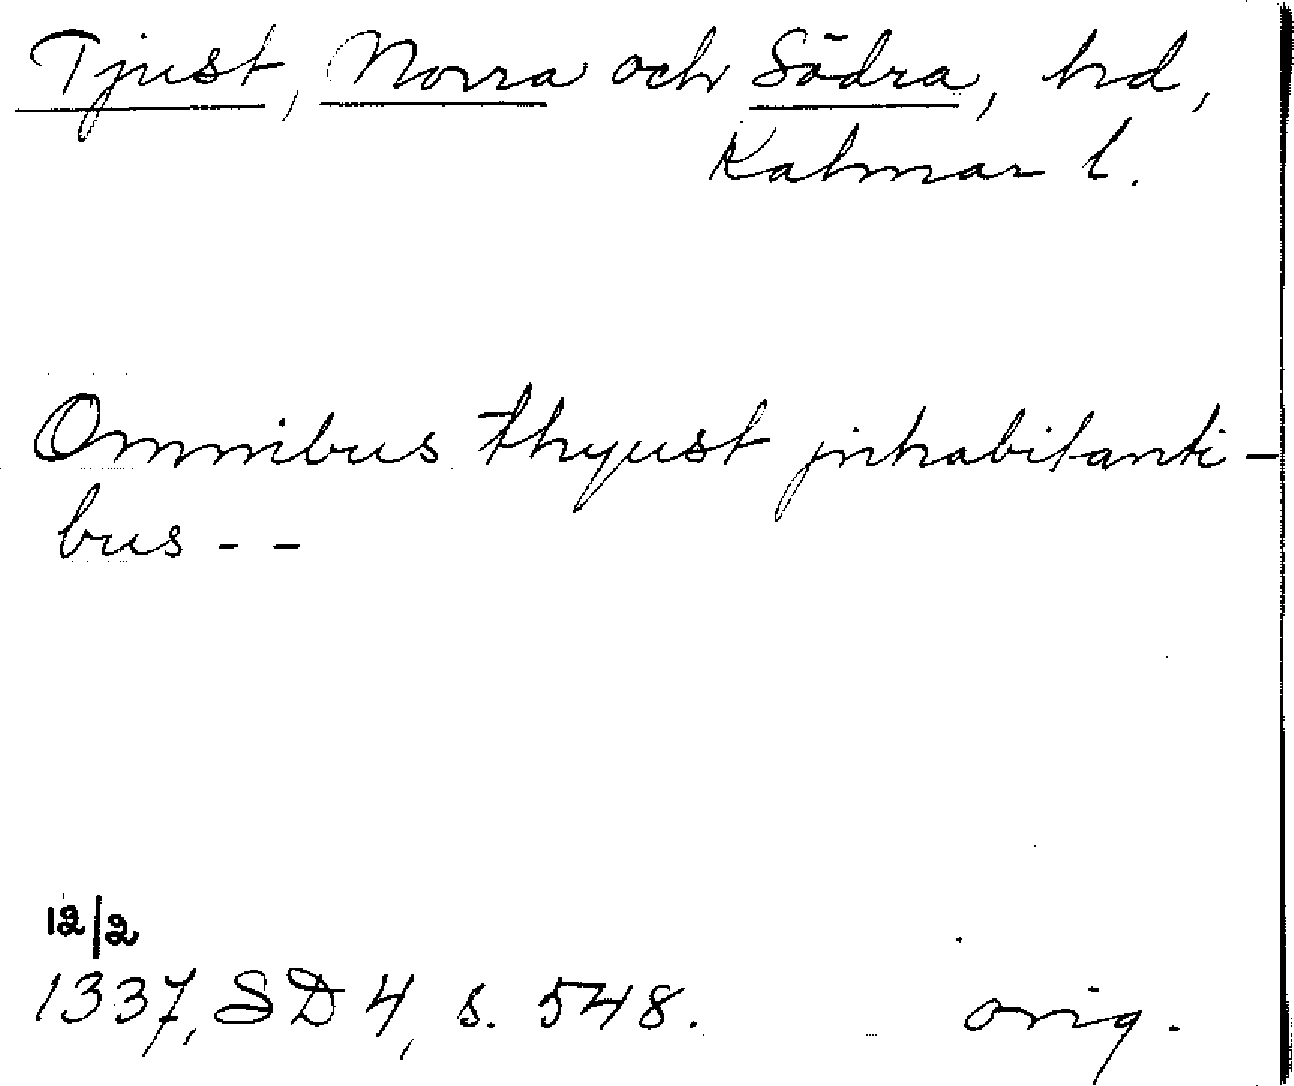 Tjust, Norra och Södra, hd,
Kalmar l.
Omnibus thyust jnhabitanti-
bus - -
12/2
1337, SD 4, s. 548. orig.